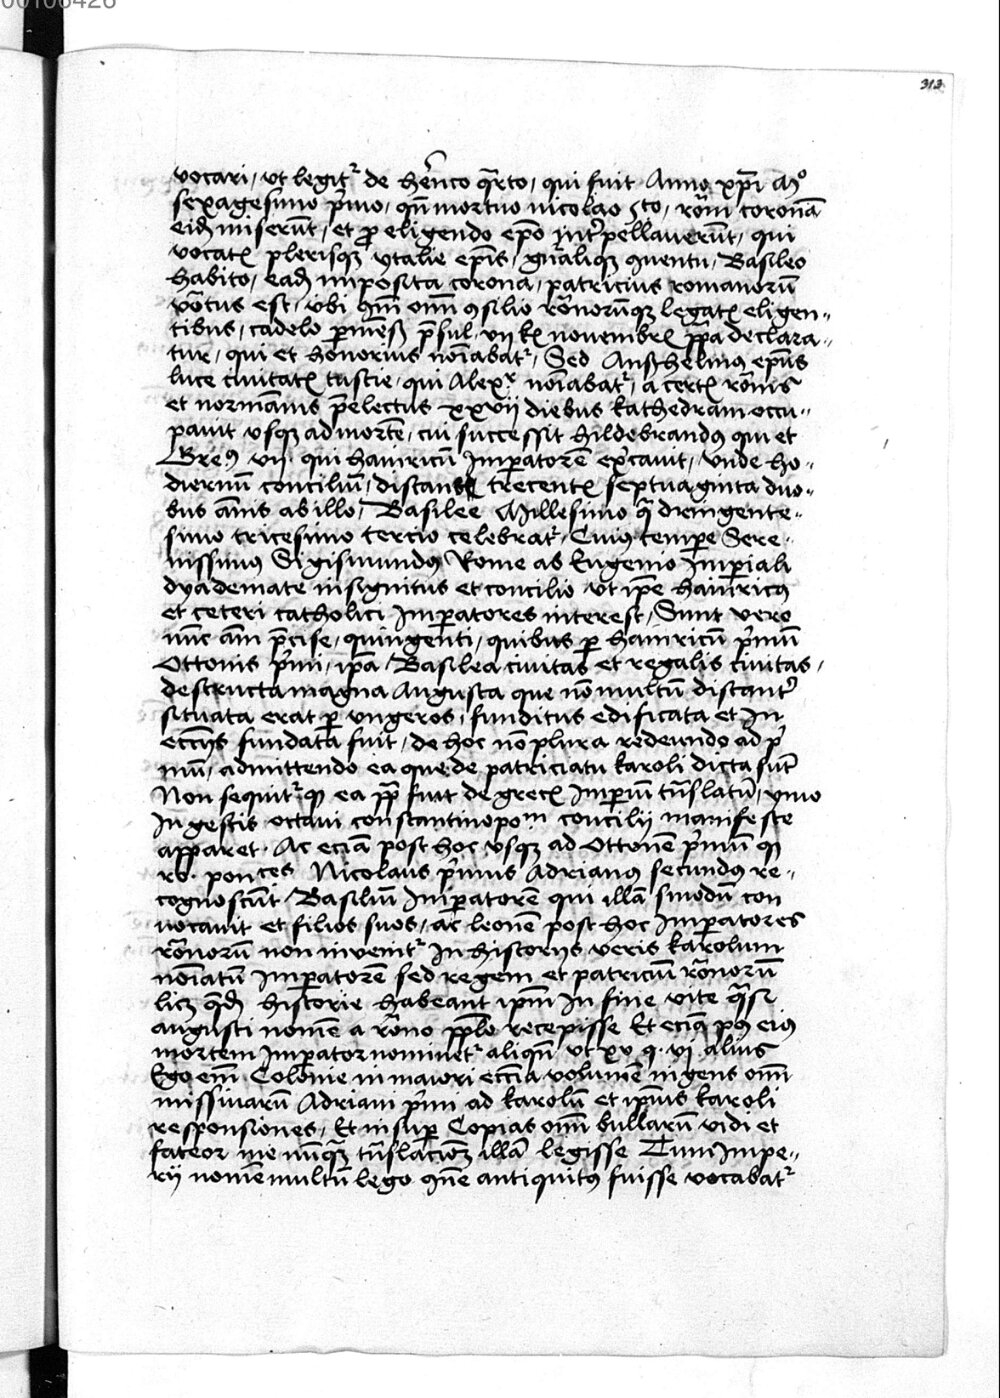 00106426
313
vocari / ut legit᷑ de hērico q̄rto / qui fuit Anno xp̄i Mº
sexagesimo p̄mo / qn̄ mortuo nicolao 2º / rōm coronā
eidē miserūt / et pro eligendo ep̄o int̄pellaverūt / qui
vocat̄ plerisqꝫ ytalie ep̄is / gn̄aliqꝫ ꝯventu / Basileo
habito / eadē imposita corona / patricius romanorū
vōtus est / ubi qm̄ om̄ ꝯsilio rōnorūqꝫ legat̄ eligen-
tibus / cadelo p̄men̄ p̄sul vij kł novembr̄ pp̄a declara-
tur / qui et honorius noīabat᷑ / Sed Anßhelmus ep̄us
luce civitat̄ tuscie / qui Alex᷑ noīabat᷑ / a cert̄ rōnis
et normānis p̄electus xxvij diebus kathedram occu-
pavit usqꝫ ad mortē / cui successit hildebrandus qui et
Greꝰ vij qui hainricū Imp̄atorē ex̄cavit / unde ho-
diernū conciliū / distans trecent̄ septuaginta duo-
bus annis ab illo / Basilee Millesimo q̄dringente-
simo tricesimo tercio celebrat᷑ / Cuius tempe Sere-
nissimus Sigismundus Rome ab Eugenio Imp̄iali
dyademate insignitus et concilio ut ip̄e hainricus
et ceteri catholici Imp̄atores interest / Sunt vero
nūc an̄i p̄cise / quingenti / quibus p̄ hainricū p̄mū
Ottonis p̄mi / ip̄a Basilea civitas et regalis civitas /
destructa magna Augusta que nō multū distant̄
situata erat p̄ ungeros / funditus edificata et In
eccīis fundata fuit / de hoc nō plura redeundo ad p̄
mū / admittendo ea que de patriciatu karoli dicta sūt
Non sequit᷑ qꝫ ea pp̄ fuit de grecꝭ Imperiū tn̄slatū / ymo
In gestis octavi constantinopoᵐ concilij manifeste
apparet. Ac eciā post hoc usqꝫ ad Ottonē p̄mū qꝫ
ro. pontces Nicolaus p̄mus Adrianus secundus re-
cognoscūt Basiliū Imp̄atorē qui illā sinodū con
vocavit et filios suos / ac leonē post hoc Imp̄atores
rōnorū non invenit᷑ In historijs veris karolum
noīatū Imp̄atorē sed regem et patriciū rōnorū
licꝫ q̄dē historie habeant ip̄m In fine vite q̄si
augusti nomē a rōno pp̄lo recepisse Et eciā pꝰ eiꝰ
mortem Imp̄ator nominet᷑ aliqn̄ ut xv q. vj alius
Ego em̄ Colonie in maiori ecc̄ia volumē ingens om̄
missivarū Adriani p̄mi ad karolū et ip̄ius karoli
responsiones / Et insup̄ Copias om̄ bullarū vidi et
fateor me nūq̄ꝫ tn̄slacionꝫ illā legisse Tum Impe-
rij nomē multū lego qn̄e antiquitus fuisse vocabat᷑